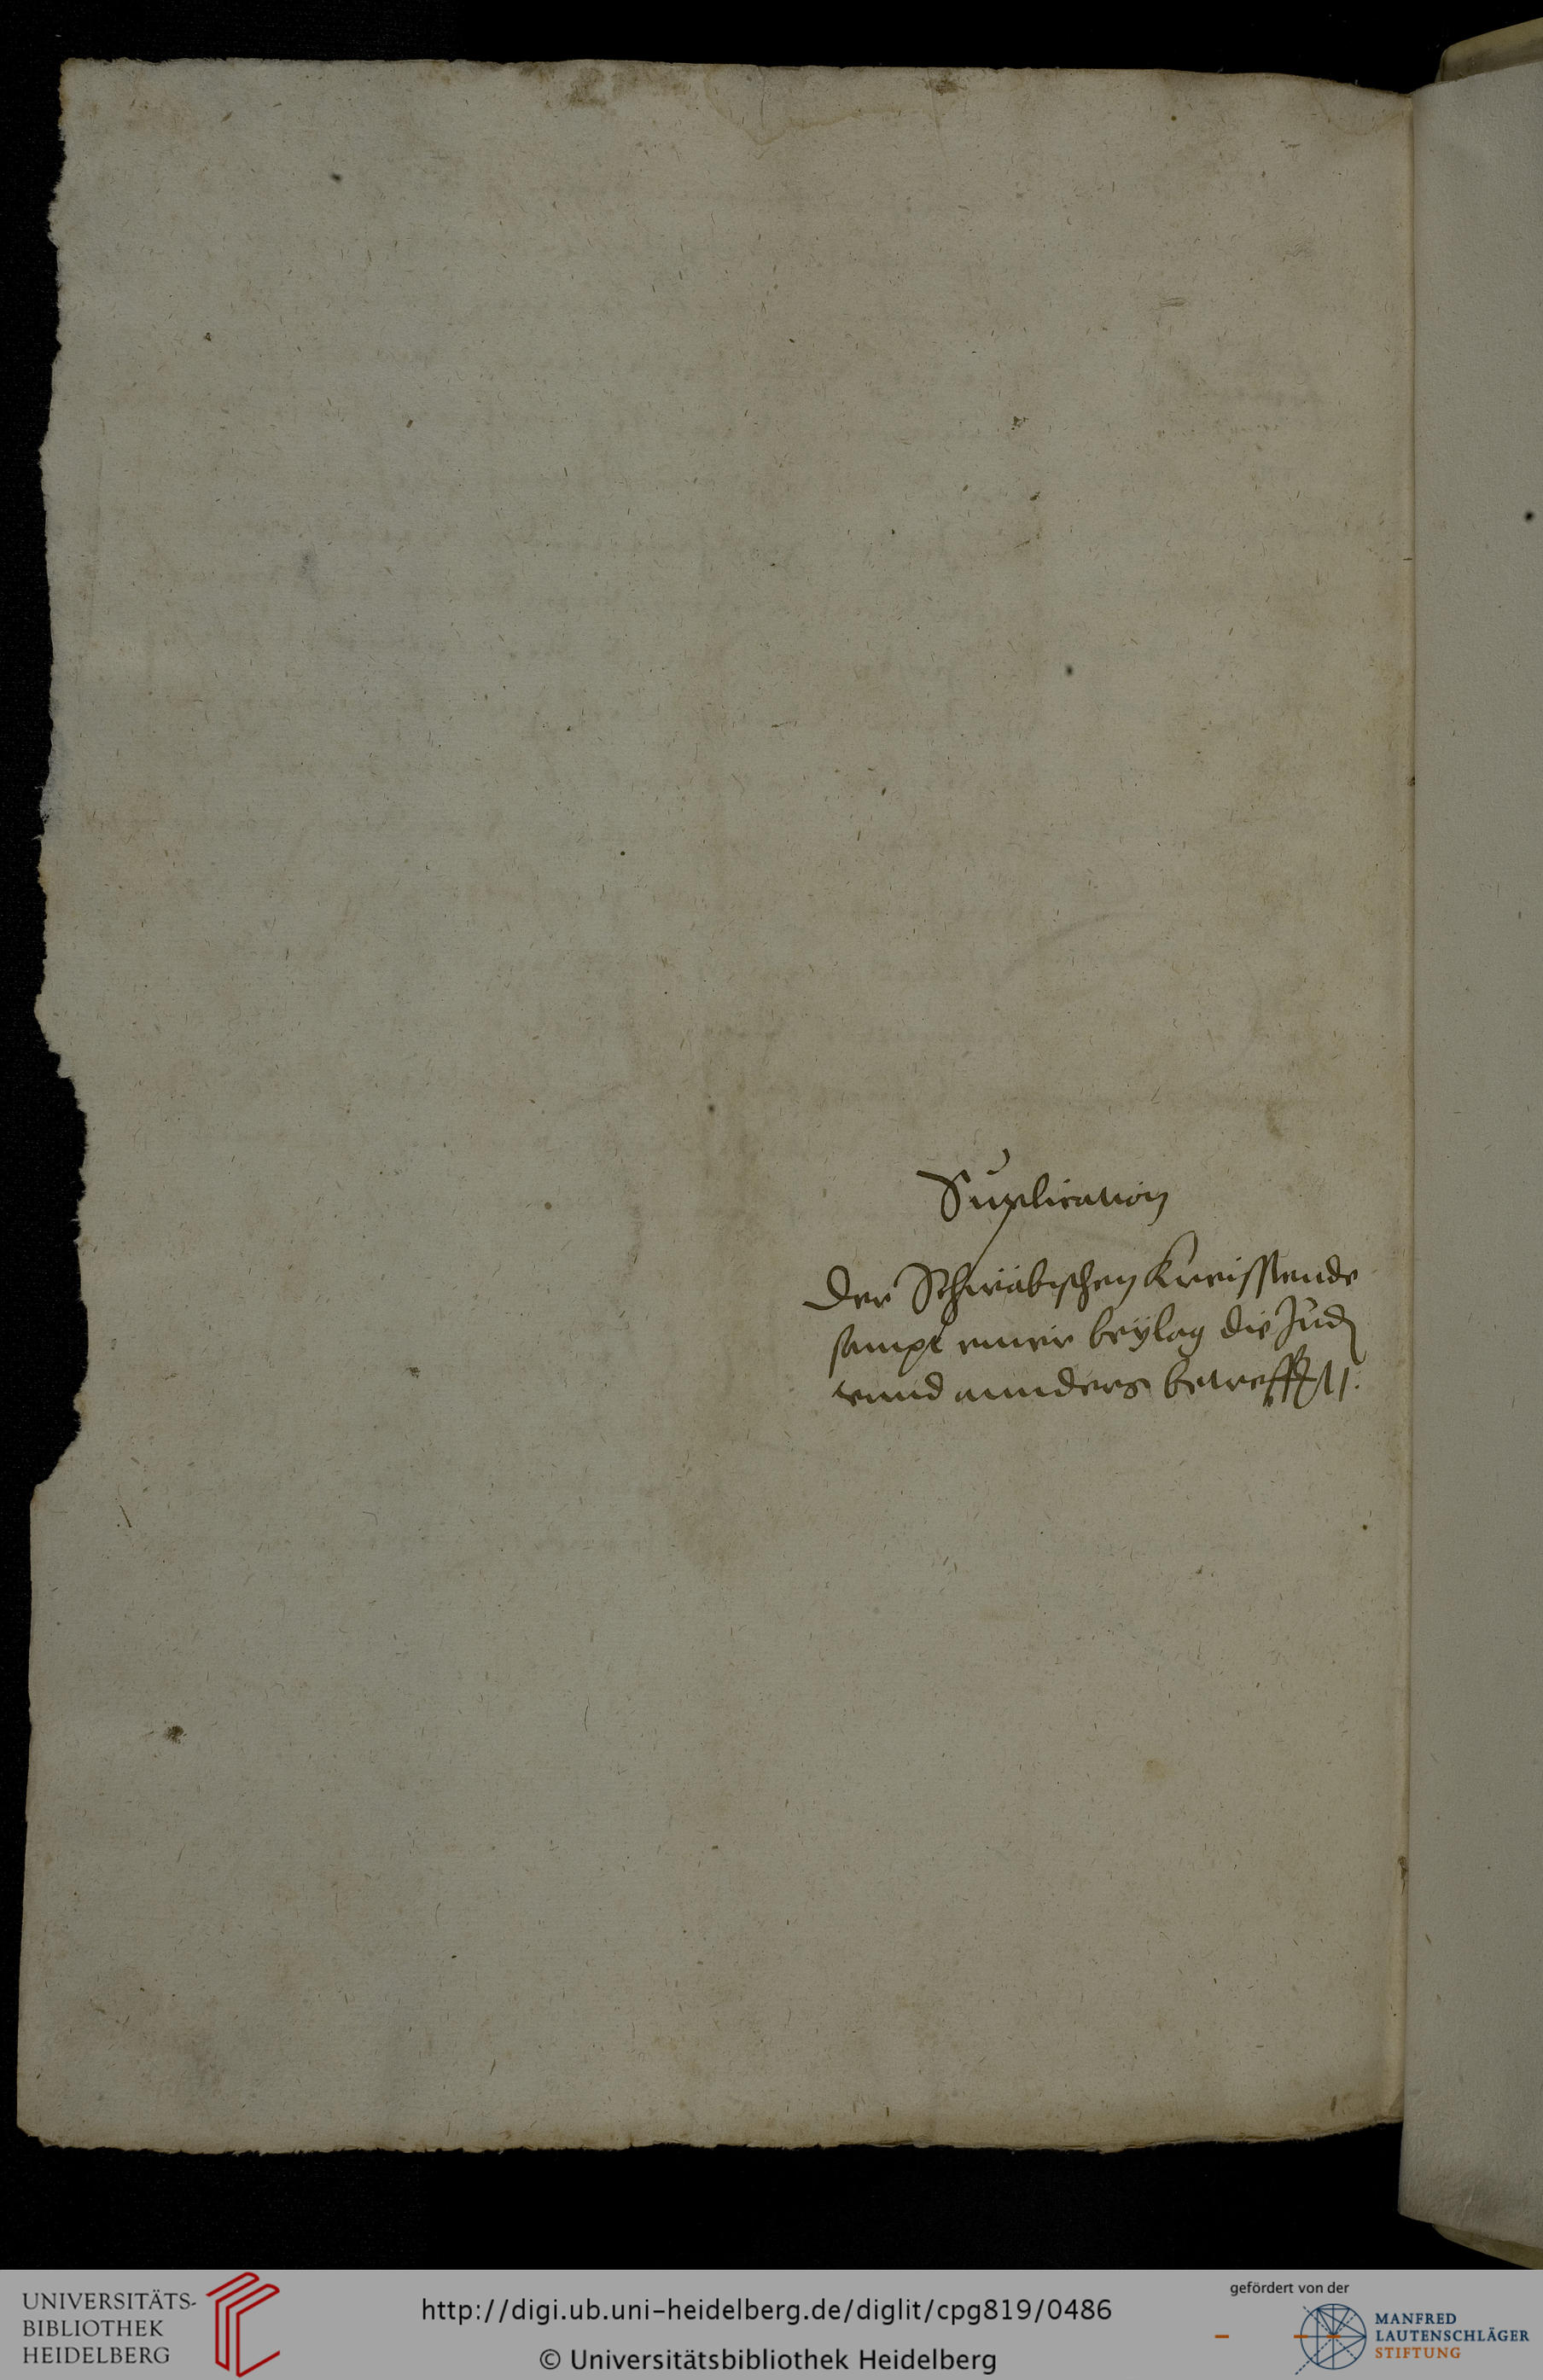 Suplication
der Schwäbischen Kreisstende
sampt einer beÿlag die Jud
vnnd annders betreffent.
UNIVERSITÄTS-
BIBLIOTHEK
HEIDELBERG
http://digi.ub.uni-heidelberg.de/diglit/cpg819/0486
© Universitätsbibliothek Heidelberg
gefördert von der
MANFRED
LAUTENSCHLÄGER
STIFTUNG